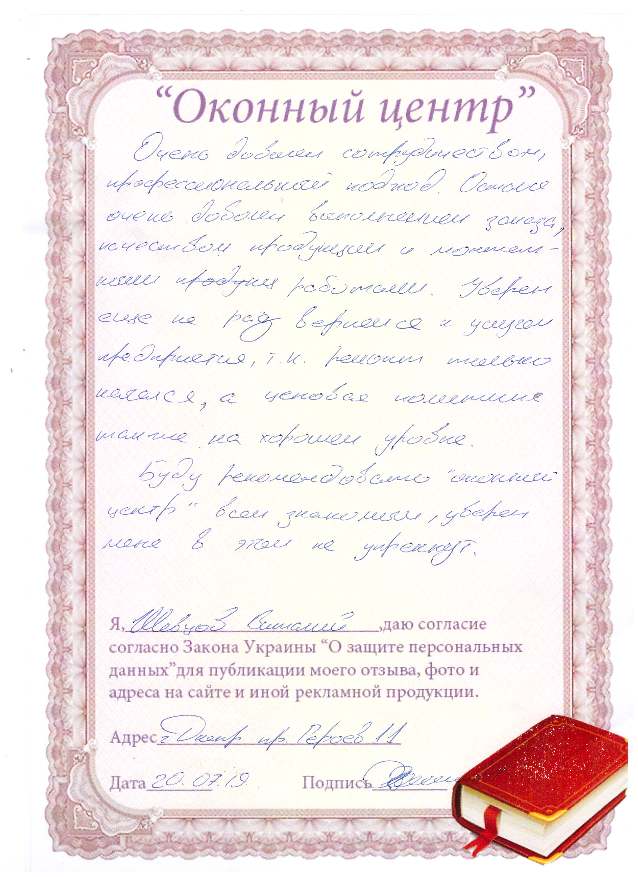 “Оконный центр”
Очень доволен сотрудничеством,
профессиональный подход. Остался
очень доволен выполнением заказа,
качеством продукции и монтаж-
ными работами. Уверен
еще не раз вернемся к услугам
предприятия, т.к. ремонт только
начался, а ценовая политика
также на хорошем уровне.
Буду рекомендовать "оконный
центр" всем знакомым, уверен
меня в этом не упрекнут.
Я, Шевцов Виталий ,даю согласие
согласно Закона Украины “О защите персональных
данных”для публикации моего отзыва, фото и
адреса на сайте и иной рекламной продукции.
Адрес г. Днепр пр. Героев 11
Дата 20.07.19 Подпись